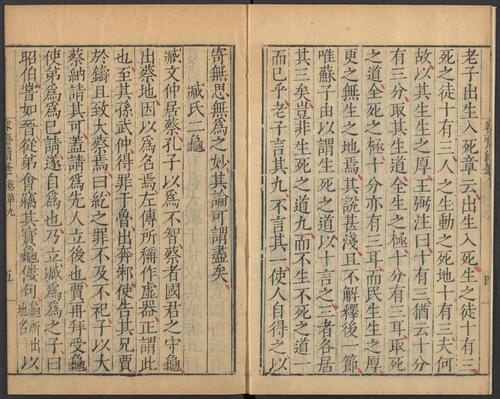 老子出生入死章云出生入死生之徒十有三
死之徒十有三人之生動之死地十有三夫何
故以其生生之厚王弼注曰十有三猶云十分
有三分取其生道全生之極十分有三耳取死
之道全死之極十分亦有三耳而民生生之厚
更之無生之地焉其說甚淺且不解釋後一節
唯蘇子由以謂生死之道以十言之三者各居
其三矣豈非生死之道九而不生不死之道一
而已乎老子言其九不言其一使人自得之以
寄無思無為之妙其論可謂盡矣
臧氏二龜
臧文仲居蔡孔子以為不智蔡者國君之守龜
出蔡地因以為名焉左傳所稱作虛器正謂此
也至其孫武仲得罪于魯出奔邾使告其兄賈
於鑄且致大蔡焉曰紇之罪不及不祀子以大
蔡納請其可蓋請為先人立後也賈再拜受龜
使弟為為已請遂自為也乃立臧為為之子曰
昭伯嘗如晉從弟會竊其寶龜僂句龜所出地名以
容齋續筆 卷第九
五
四